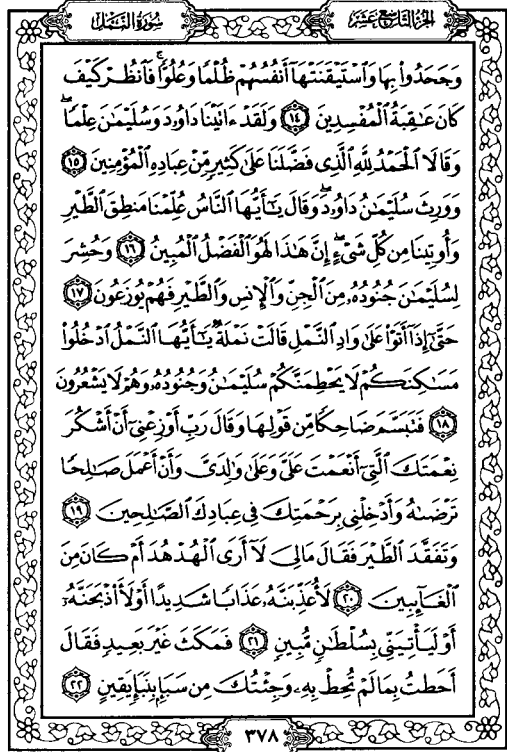 سُورَةُ النَّمْلِ
الجُزْءُ التَّاسِعَ عَشَرَ
وَجَحَدُوا۟ بِهَا وَٱسْتَيْقَنَتْهَآ أَنفُسُهُمْ ظُلْمًا وَعُلُوًّا ۚ فَٱنظُرْ كَيْفَ
كَانَ عَٰقِبَةُ ٱلْمُفْسِدِينَ ١٤ وَلَقَدْ ءَاتَيْنَا دَاوُۥدَ وَسُلَيْمَٰنَ عِلْمًا ۖ
وَقَالَا ٱلْحَمْدُ لِلَّهِ ٱلَّذِى فَضَّلَنَا عَلَىٰ كَثِيرٍ مِّنْ عِبَادِهِ ٱلْمُؤْمِنِينَ ١٥
وَوَرِثَ سُلَيْمَٰنُ دَاوُۥدَ ۖ وَقَالَ يَٰٓأَيُّهَا ٱلنَّاسُ عُلِّمْنَا مَنطِقَ ٱلطَّيْرِ
وَأُوتِينَا مِن كُلِّ شَىْءٍ ۖ إِنَّ هَٰذَا لَهُوَ ٱلْفَضْلُ ٱلْمُبِينُ ١٦ وَحُشِرَ
لِسُلَيْمَٰنَ جُنُودُهُۥ مِنَ ٱلْجِنِّ وَٱلْإِنسِ وَٱلطَّيْرِ فَهُمْ يُوزَعُونَ ١٧
حَتَّىٰٓ إِذَآ أَتَوْا۟ عَلَىٰ وَادِ ٱلنَّمْلِ قَالَتْ نَمْلَةٌ يَٰٓأَيُّهَا ٱلنَّمْلُ ٱدْخُلُوا۟
مَسَٰكِنَكُمْ لَا يَحْطِمَنَّكُمْ سُلَيْمَٰنُ وَجُنُودُهُۥ وَهُمْ لَا يَشْعُرُونَ
١٨ فَتَبَسَّمَ ضَاحِكًا مِّن قَوْلِهَا وَقَالَ رَبِّ أَوْزِعْنِىٓ أَنْ أَشْكُرَ
نِعْمَتَكَ ٱلَّتِىٓ أَنْعَمْتَ عَلَىَّ وَعَلَىٰ وَٰلِدَىَّ وَأَنْ أَعْمَلَ صَٰلِحًا
تَرْضَىٰهُ وَأَدْخِلْنِى بِرَحْمَتِكَ فِى عِبَادِكَ ٱلصَّٰلِحِينَ ١٩
وَتَفَقَّدَ ٱلطَّيْرَ فَقَالَ مَالِىَ لَآ أَرَى ٱلْهُدْهُدَ أَمْ كَانَ مِنَ
ٱلْغَآئِبِينَ ٢٠ لَأُعَذِّبَنَّهُۥ عَذَابًا شَدِيدًا أَوْ لَأَا۟ذْبَحَنَّهُۥٓ
أَوْ لَيَأْتِيَنِّى بِسُلْطَٰنٍ مُّبِينٍ ٢١ فَمَكَثَ غَيْرَ بَعِيدٍ فَقَالَ
أَحَطتُ بِمَا لَمْ تُحِطْ بِهِۦ وَجِئْتُكَ مِن سَبَإٍۭ بِنَبَإٍ يَقِينٍ ٢٢
٣٧٨